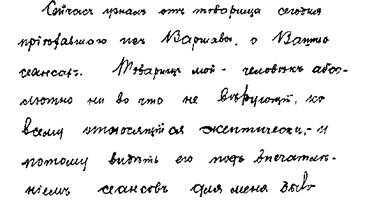 Сейчас узналъ отъ товарища сегодня
пріѣхавшаго изъ Варшавы, о Вашихъ
сеансахъ. Товарищъ мой - человѣкъ абсо-
лютно ни во что не вѣрующій, ко
всему относящійся скептически, - и
потому видѣть его подъ впечатлѣ-
ніемъ сеансовъ для меня было